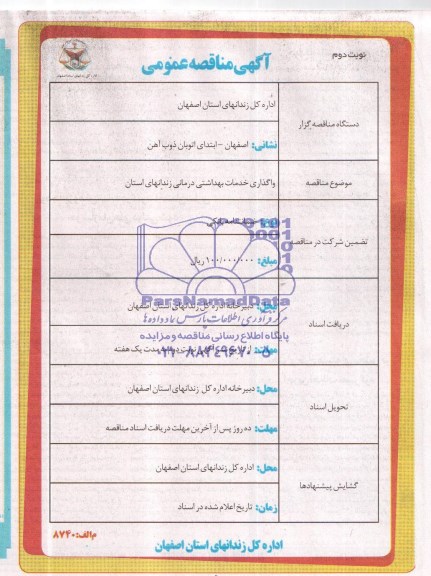 نوبت دوم
آگهی مناقصه عمومی
دستگاه مناقصه گزار
اداره کل زندانهای استان اصفهان
نشانی: اصفهان - ابتدای اتوبان ذوب آهن
موضوع مناقصه
واگذاری خدمات بهداشتی درمانی زندانهای استان
تضمین شرکت در مناقصه
مبلغ: ۱۰۰/۰۰۰/۰۰۰ ریال
دریافت اسناد
محل: دبیرخانه اداره کل زندانهای استان اصفهان
مهلت: مدت یک هفته
تحویل اسناد
محل: دبیرخانه اداره کل زندانهای استان اصفهان
مهلت: ده روز پس از آخرین مهلت دریافت اسناد مناقصه
گشایش پیشنهادها
محل: اداره کل زندانهای استان اصفهان
زمان: تاریخ اعلام شده در اسناد
م الف: ۸۷۴۰
اداره کل زندانهای استان اصفهان
ParsNamadData
مرکز فرآوری اطلاعات پارس نماد داده ها
پایگاه اطلاع رسانی مناقصه و مزایده
۰۲۱-۸۸۳۴۹۶۷۰-۵